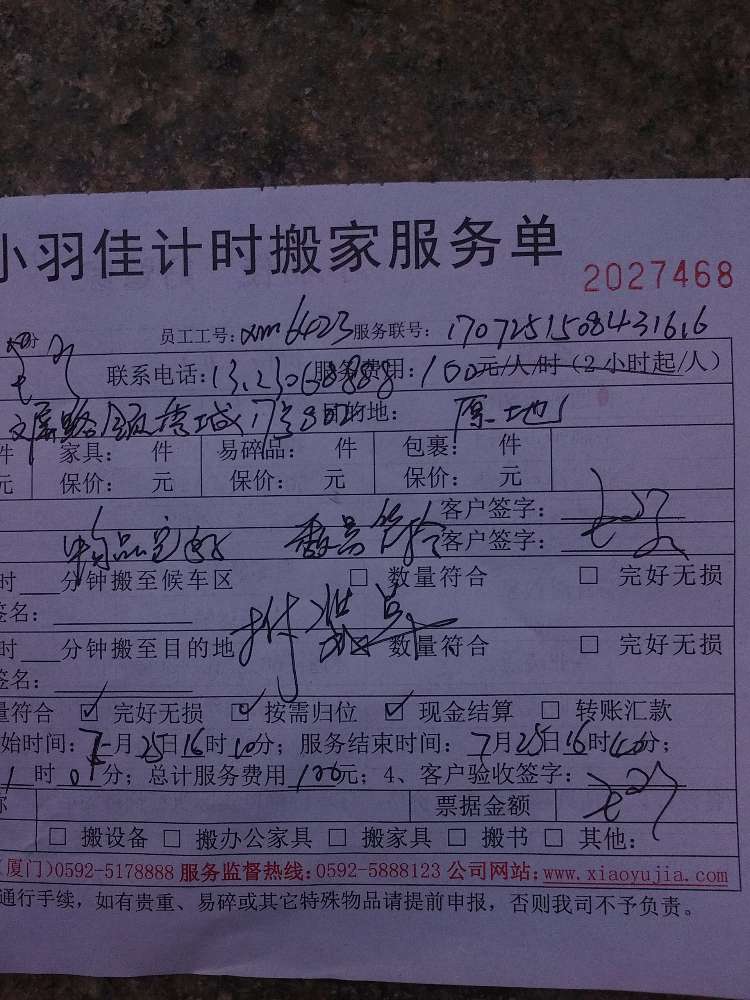 小羽佳计时搬家服务单
2027468
员工工号: xm6423 服务联号: 1707251508431616
联系电话: 13123068888 服务费用: 100元/人/时（2小时起/人）
目的地: 原地
件 家具: 件 易碎品: 件 包裹: 件
元 保价: 元 保价: 元 保价: 元
客户签字:
物品完好 数量符合 客户签字:
时 分钟搬至候车区 □ 数量符合 □ 完好无损
签名:
拆装单
时 分钟搬至目的地 数量符合 □ 完好无损
签名:
量符合 ☑ 完好无损 ☑ 按需归位 ☑ 现金结算 □ 转账汇款
始时间: 7月25日16时10分; 服务结束时间: 7月25日16时40分;
时 分; 总计服务费用 100元; 4、客户验收签字:
称 票据金额
□ 搬设备 □ 搬办公家具 □ 搬家具 □ 搬书 □ 其他:
(厦门)0592-5178888 服务监督热线:0592-5888123 公司网站:www.xiaoyujia.com
通行手续，如有贵重、易碎或其它特殊物品请提前申报，否则我司不予负责。